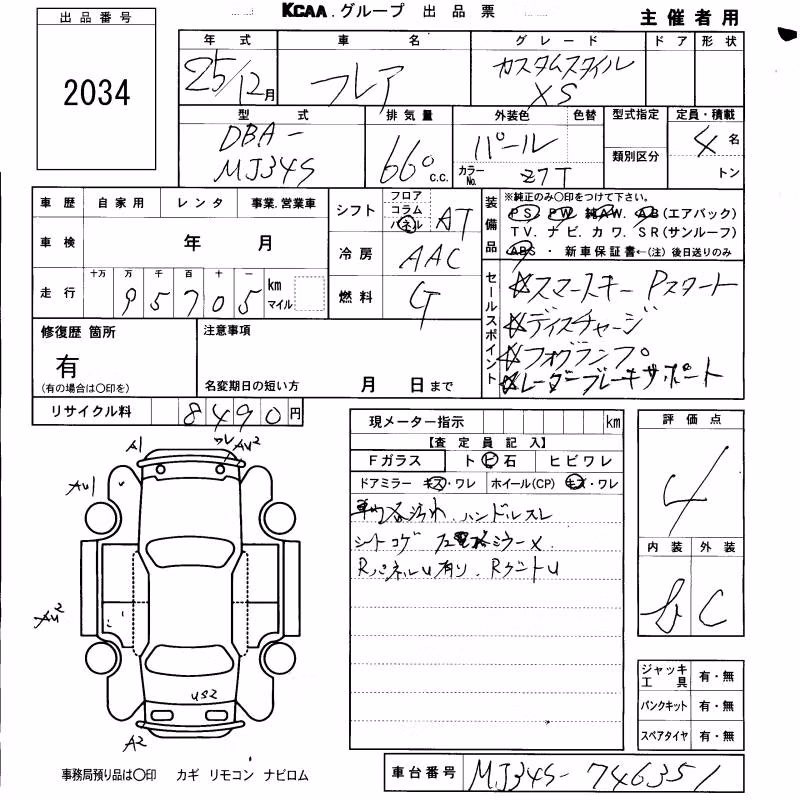 KCAA.グループ 出品票
主催者用
出品番号
2034
年式 車名 グレード ドア 形状
25/12月 フレア カスタムスタイル
XS
型式 排気量 外装色 色替 型式指定 定員・積載
DBA-
MJ34S 660 c.c. パール 4名
カラーNo. Z7T 類別区分 トン
車歴 自家用 レンタ 事業.営業車
車検 年 月
走行 十万 万 千 百 十 一
95705 km マイル
シフト フロア コラム パネル AT
冷房 AAC
燃料 G
装備品 ※純正のみ〇印をつけて下さい。
PS. PW. 純AW. AB(エアバック)
TV. ナビ. カワ. SR(サンルーフ)
ABS ・ 新車保証書←(注) 後日送りのみ
セールスポイント
☆スマートキー Pスタート
☆ディスチャージ
☆フォグランプ
☆レーダーブレーキサポート
修復歴 箇所
有
(有の場合は〇印を)
注意事項
名変期日の短い方 月 日まで
リサイクル料 8490円
現メーター指示 km
【査定員記入】
Fガラス ト ビ 石 ヒビワレ
ドアミラー キズ・ワレ ホイール(CP) キズ・ワレ
汚れ、ハンドルスレ
シートコゲ ミラー×
Rパネルu有り、
評価点
4
内装 外装
b C
A1 AU2
AU1
AU2
US2
A2
ジャッキ工具 有・無
パンクキット 有・無
スペアタイヤ 有・無
事務局預り品は〇印 カギ リモコン ナビロム
車台番号 MJ34S-746351